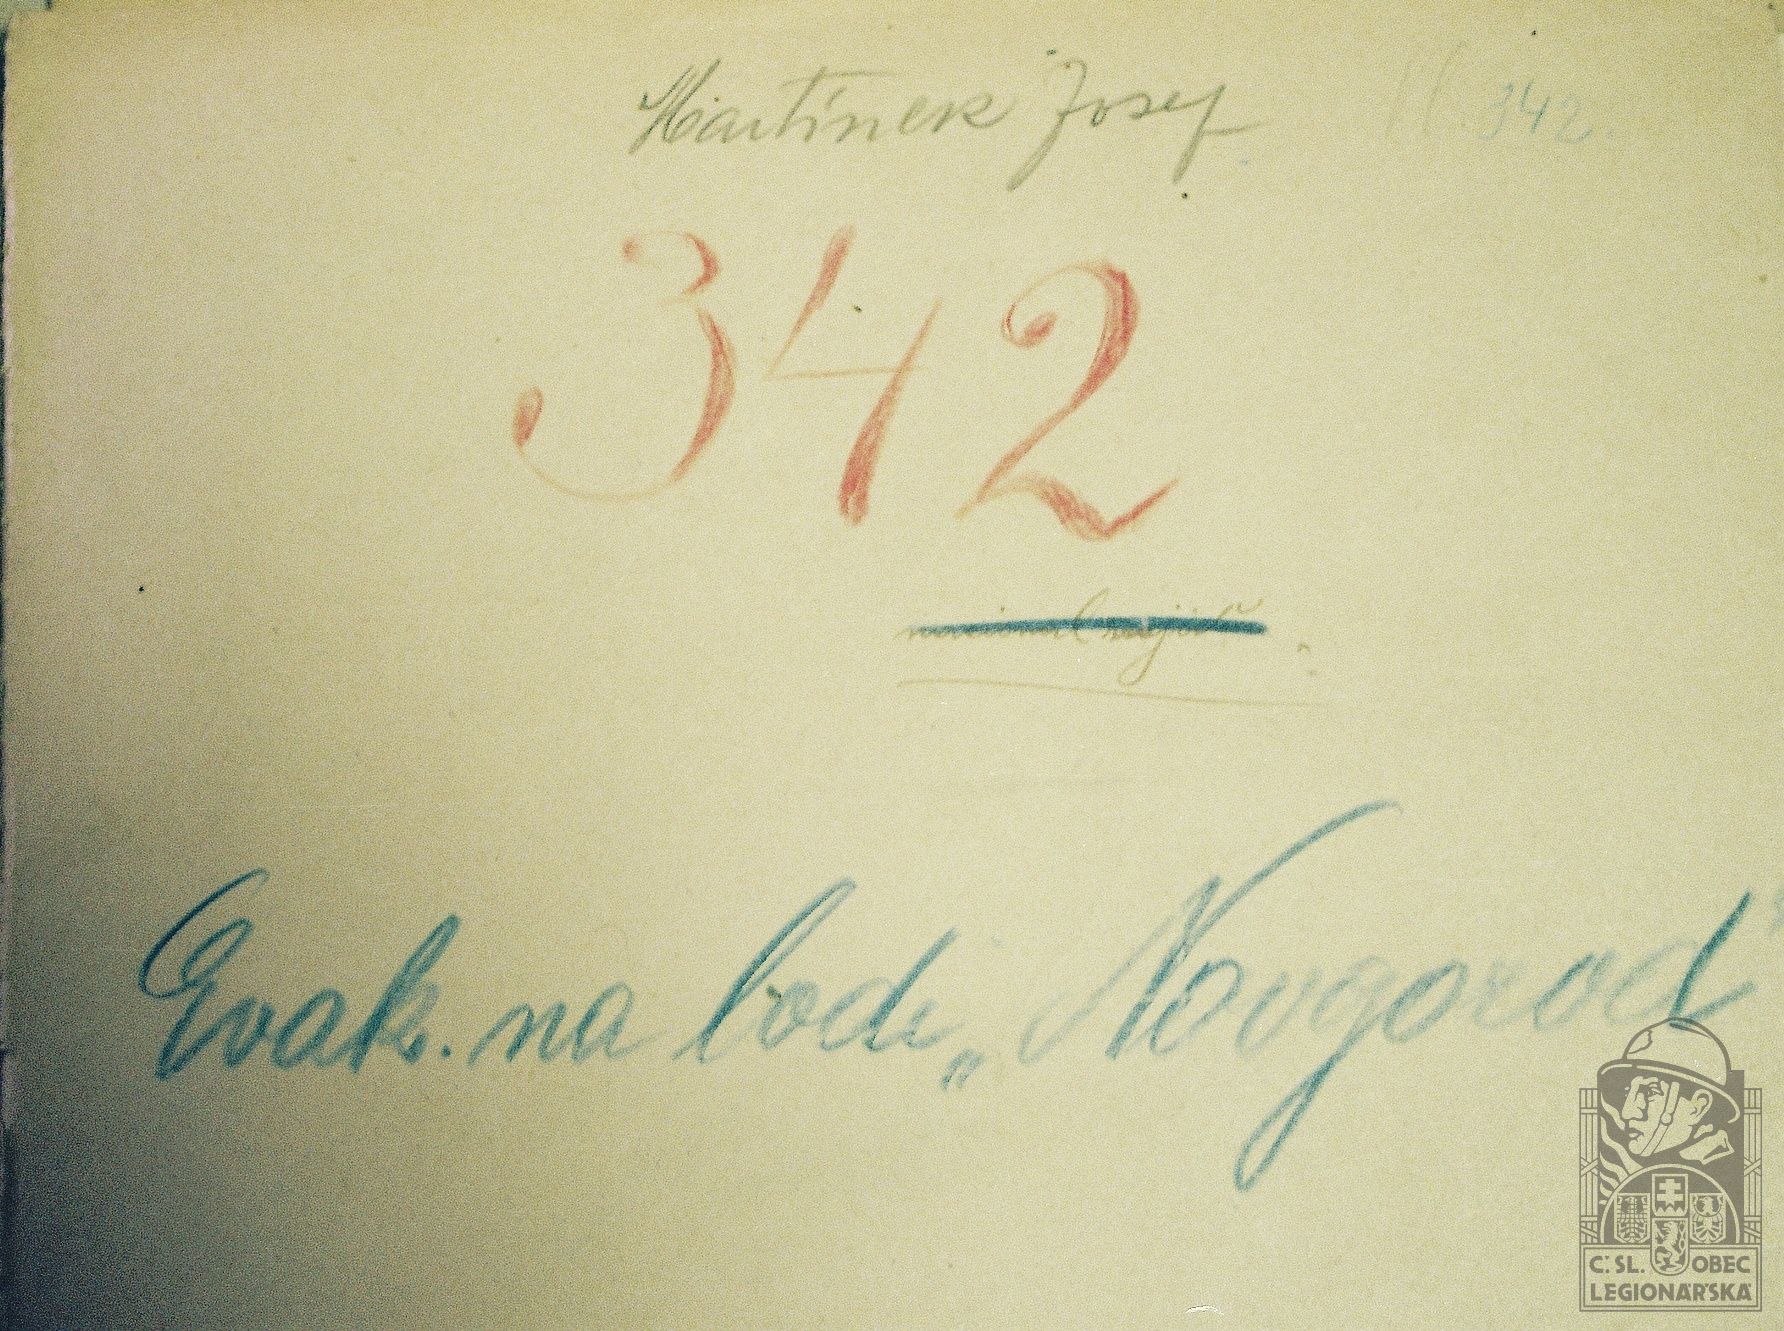 Martínek Josef 342.
342
Evak. na lodi „Novgorod"
Č. SL. OBEC
LEGIONÁŘSKÁ